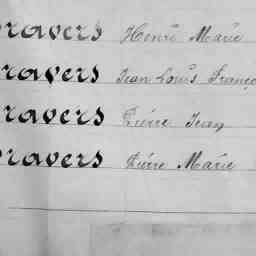 ravers Henri Marie
ravers Jean Louis Franço
ravers Pierre Jean
ravers Pierre Marie